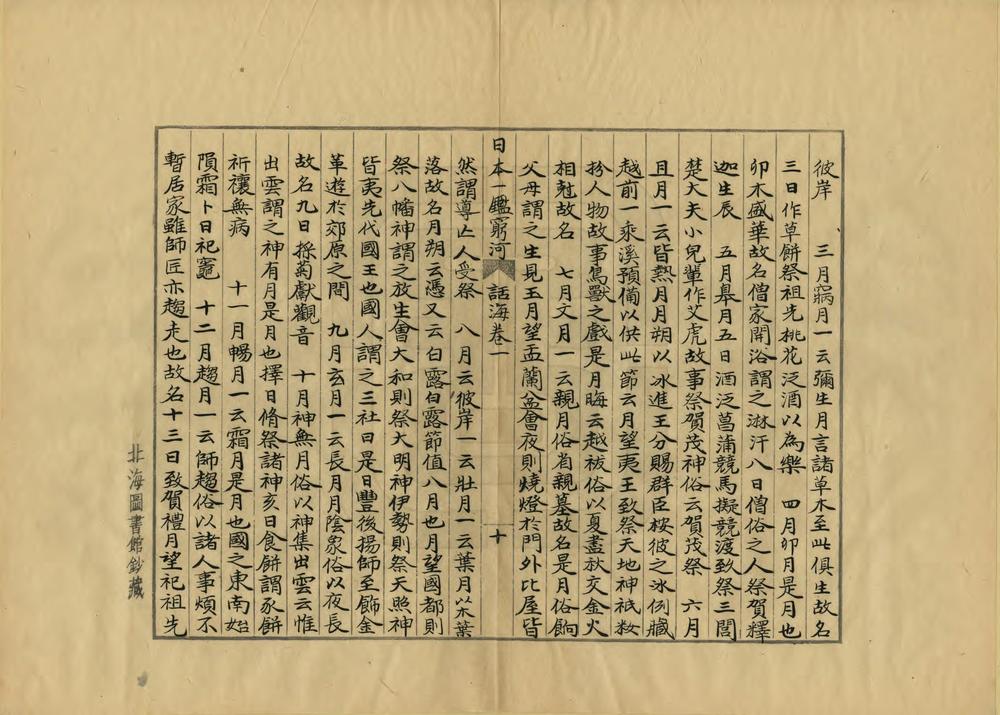 彼岸　三月窩月一云彌生月言諸草木至此俱生故名
三日作草餅祭祖先桃花泛酒以為樂　四月卯月是月也
卯木盛華故名僧家開浴謂之淋汗八日僧俗之人祭賀釋
迦生辰　五月皐月五日酒泛菖蒲競馬擬競渡致祭三閭
楚大夫小兒輩作艾虎故事祭賀茂神俗云賀茂祭　六月
且月一云皆熱月月朔以冰進王分賜群臣桉彼之冰例藏
越前一乘溪預備以供此節云月望夷王致祭天地神祇粧
扮人物故事鳥獸之戲是月晦云越祓俗以夏盡秋交金火
相尅故名　七月文月一云親月俗省親墓故名是月俗餉
父母謂之生見玉月望盂蘭盆會夜則燒燈於門外比屋皆
日本一鑑窮河　話海卷一　十
然謂導亾人受祭　八月云彼岸一云壯月一云葉月以木葉
落故名月朔云憑又云白露白露節值八月也月望國都則
祭八幡神謂之放生會大和則祭大明神伊勢則祭天照神
皆夷先代國王也國人謂之三社日是日豐後揚師至飾金
革遊於郊原之間　九月玄月一云長月月陰象俗以夜長
故名九日採菊獻觀音　十月神無月俗以神集出雲云惟
出雲謂之神有月是月也擇日脩祭諸神亥日食餅謂豕餅
祈禳無病　十一月暢月一云霜月是月也國之東南始
隕霜卜日祀竈　十二月趨月一云師趨俗以諸人事煩不
暫居家雖師匠亦趨走也故名十三日致賀禮月望祀祖先
北海圖書館鈔藏